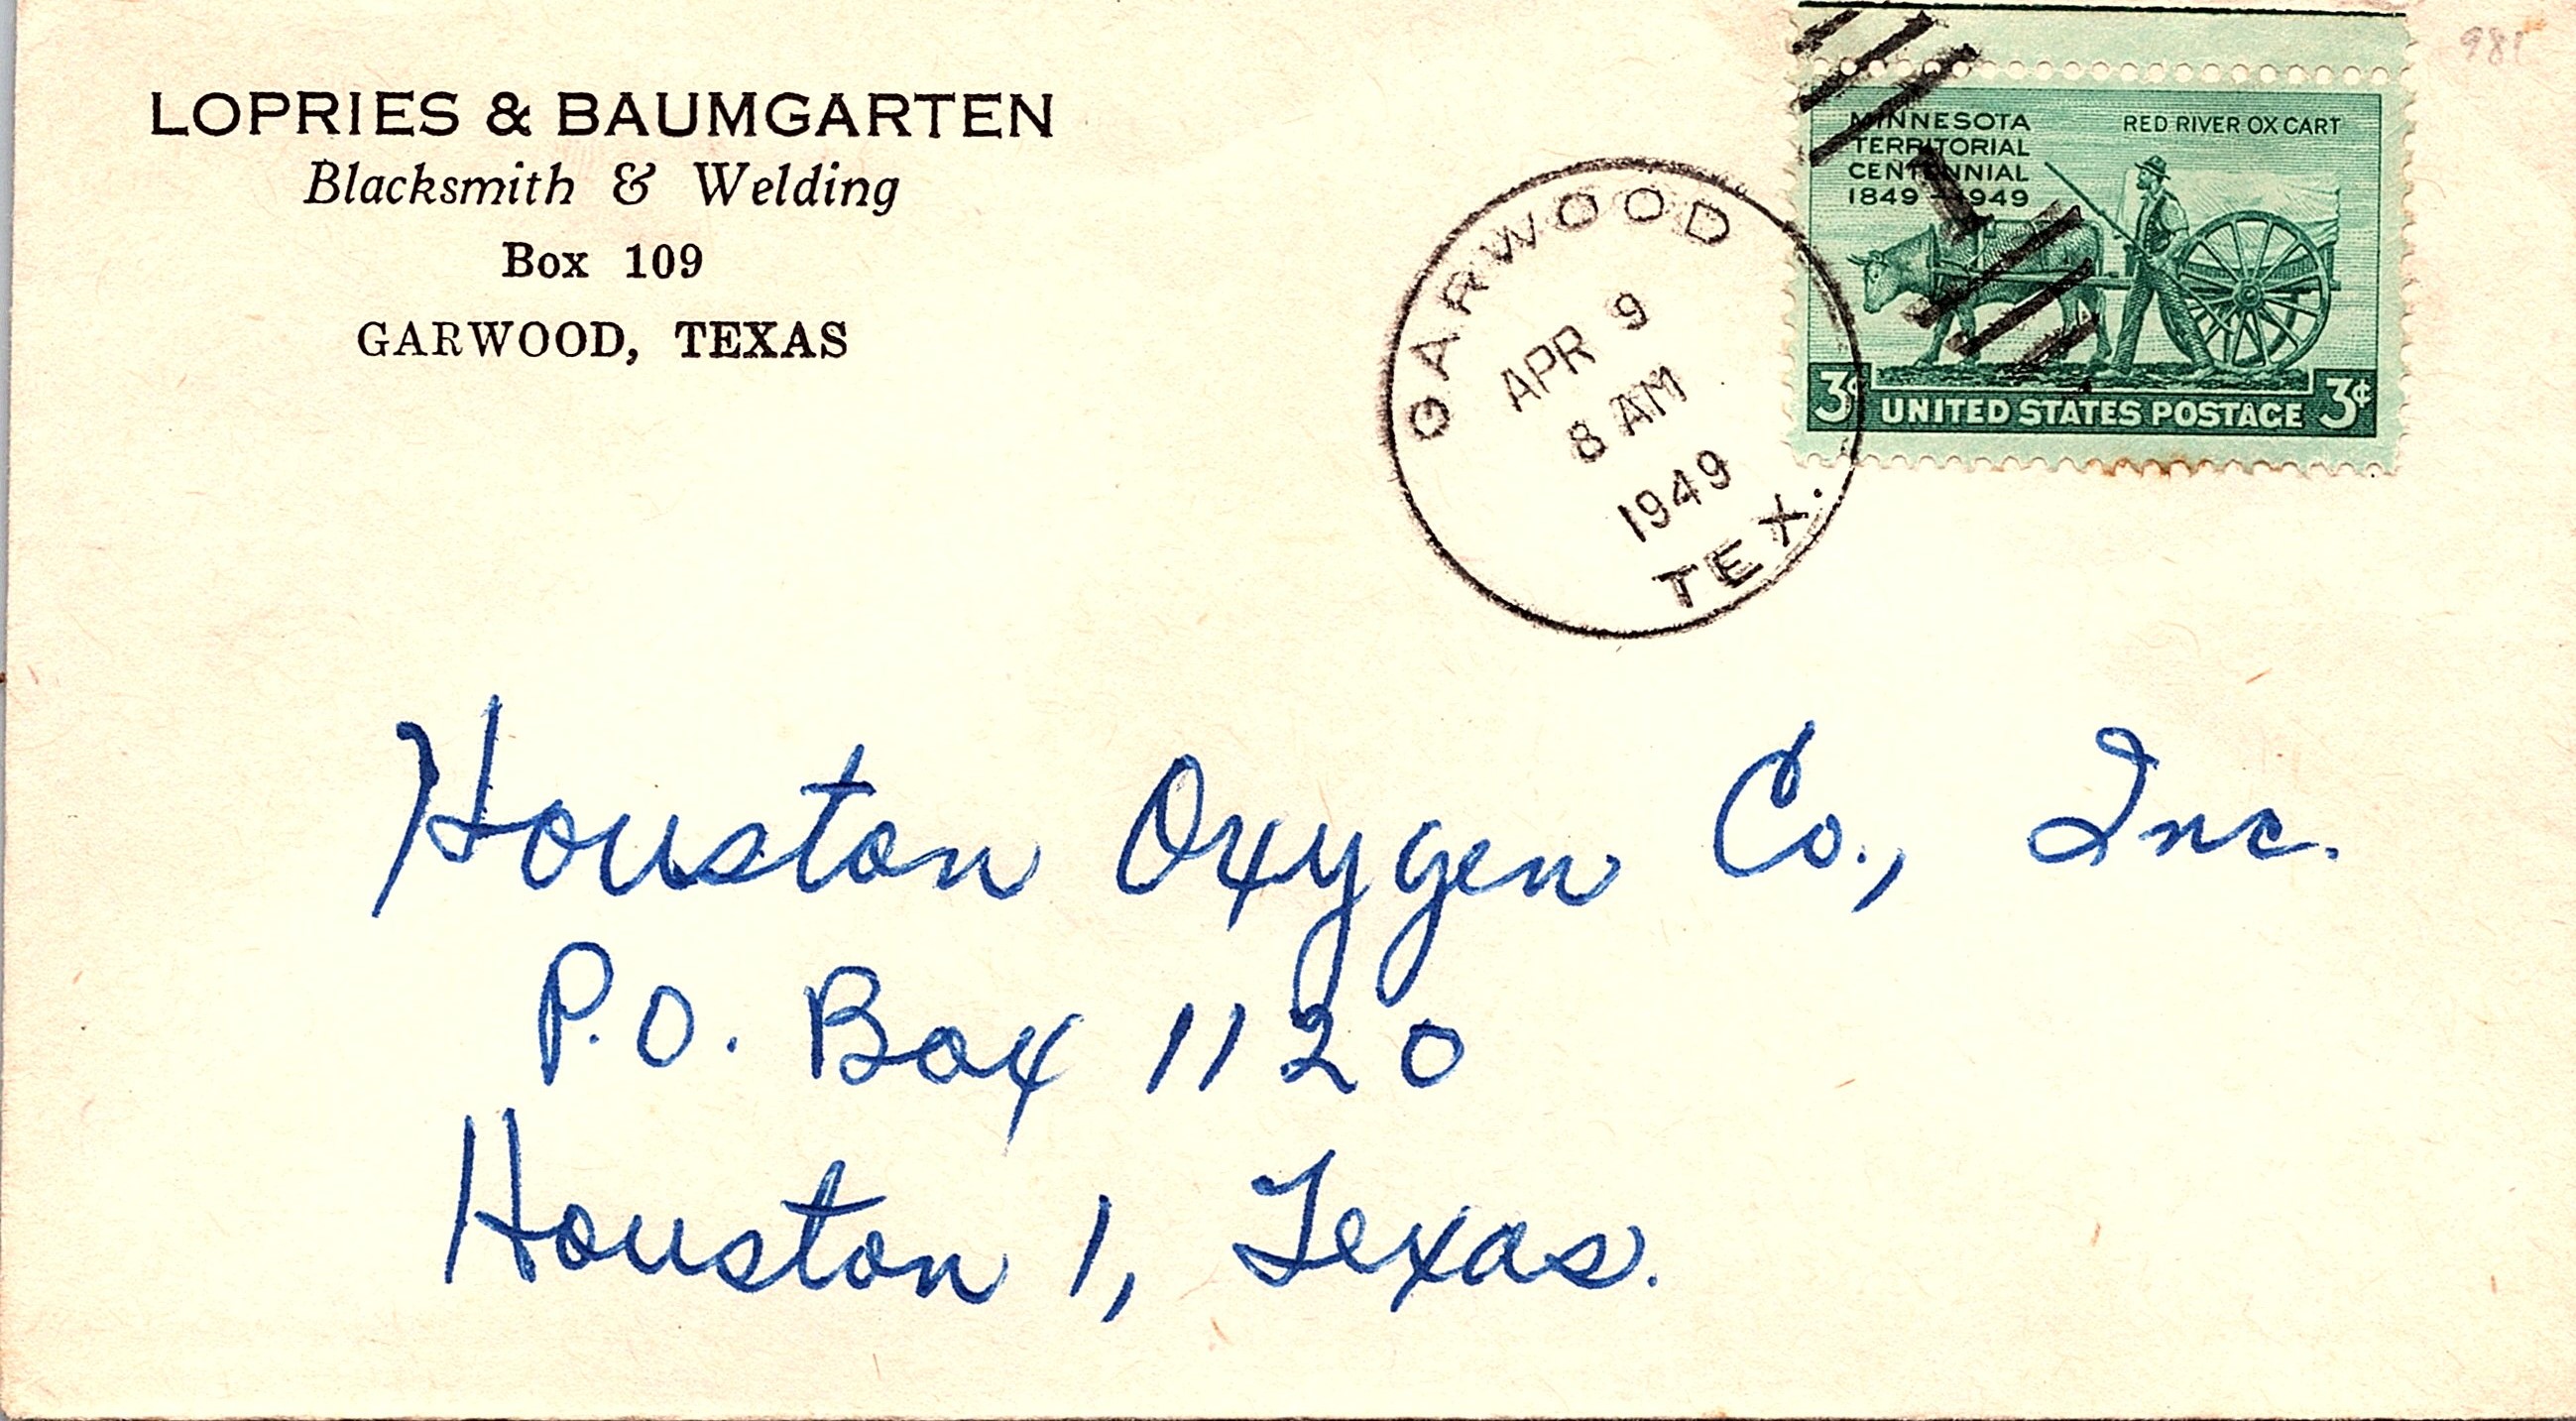 LOPRIES & BAUMGARTEN
Blacksmith & Welding
Box 109
GARWOOD, TEXAS
GARWOOD
APR 9
8 AM
1949
TEX.
MINNESOTA
TERRITORIAL
CENTENNIAL
1849 - 1949
RED RIVER OX CART
3¢ UNITED STATES POSTAGE 3¢
981
Houston Oxygen Co., Inc.
P.O. Box 1120
Houston 1, Texas.